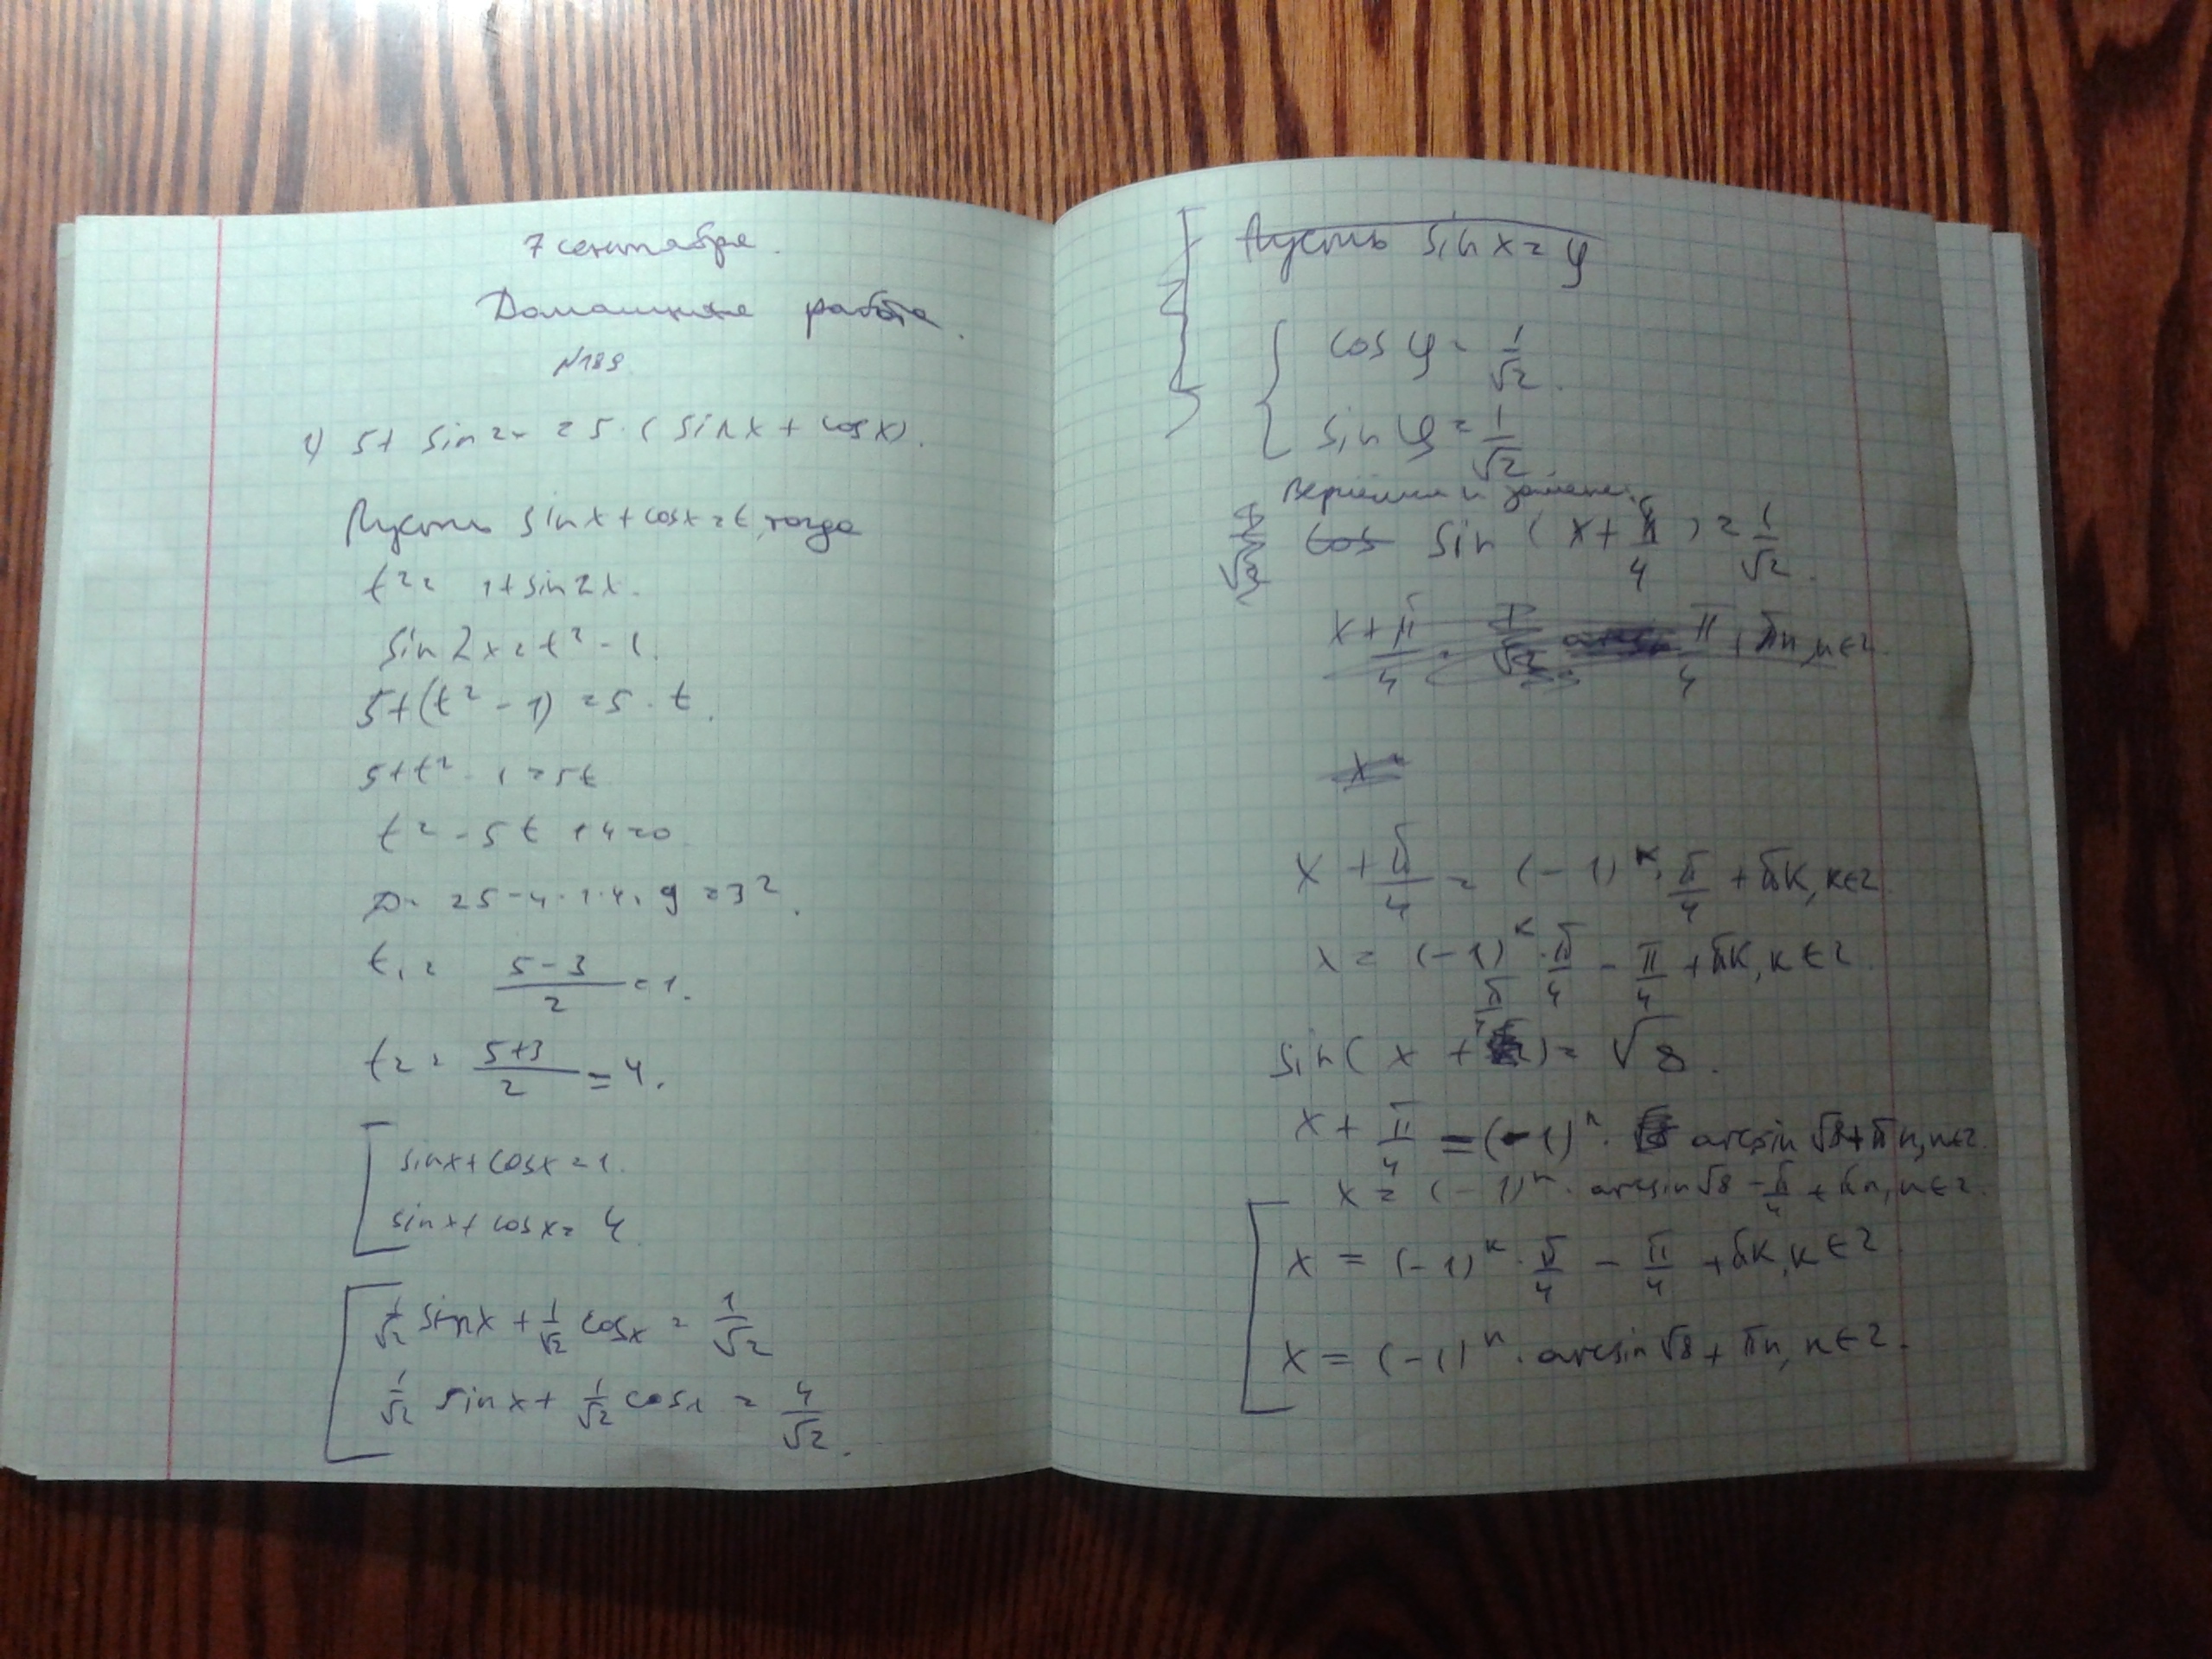 7 сентября.
Домашняя работа.
№189
1) 5+ sin 2x = 5·(sinx + cosx).
Пусть sinx+cosx=t, тогда
t²= 1+sin2x.
sin2x=t²-1.
5+(t²-1)=5·t.
5+t²-1=5t
t²-5t+4=0
D= 25-4·1·4=9=3².
t₁= (5-3)/2 =1.
t₂= (5+3)/2 =4.
sinx+cosx=1.
sinx+cosx=4
1/√2 sinx + 1/√2 cosx = 1/√2
1/√2 sinx + 1/√2 cosx = 4/√2.
Пусть sinx=φ
cos φ= 1/√2.
sin φ= 1/√2
Вернёмся к замене.
sin (x+ π/4) = 1/√2.
x + π/4 = (-1)ᵏ· π/4 + πk, k∈Z.
x = (-1)ᵏ· π/4 - π/4 + πk, k∈Z.
sin(x + π/4) = √8.
x + π/4 = (-1)ⁿ· arcsin√8+πn, n∈Z.
x = (-1)ⁿ· arcsin√8 - π/4 + πn, n∈Z.
x = (-1)ᵏ· π/4 - π/4 + πk, k∈Z.
x = (-1)ⁿ· arcsin√8 + πn, n∈Z.